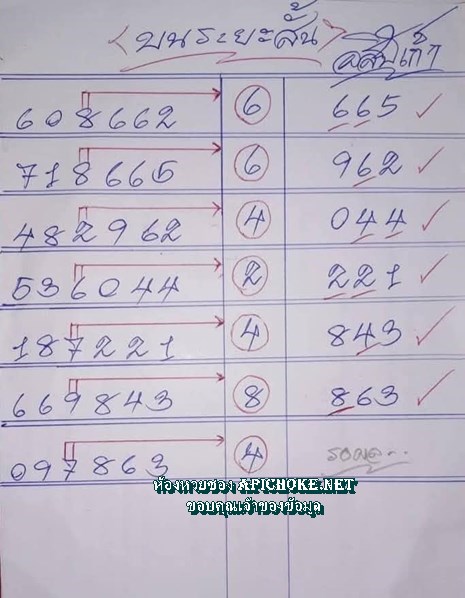 บนระยะสั้น
608662 6 665
718665 6 962
482962 4 044
536044 2 221
187221 4 843
669843 8 863
097863 4 รอผล..
ห้องหวยซอง APICHOKE.NET
ขอบคุณเจ้าของข้อมูล